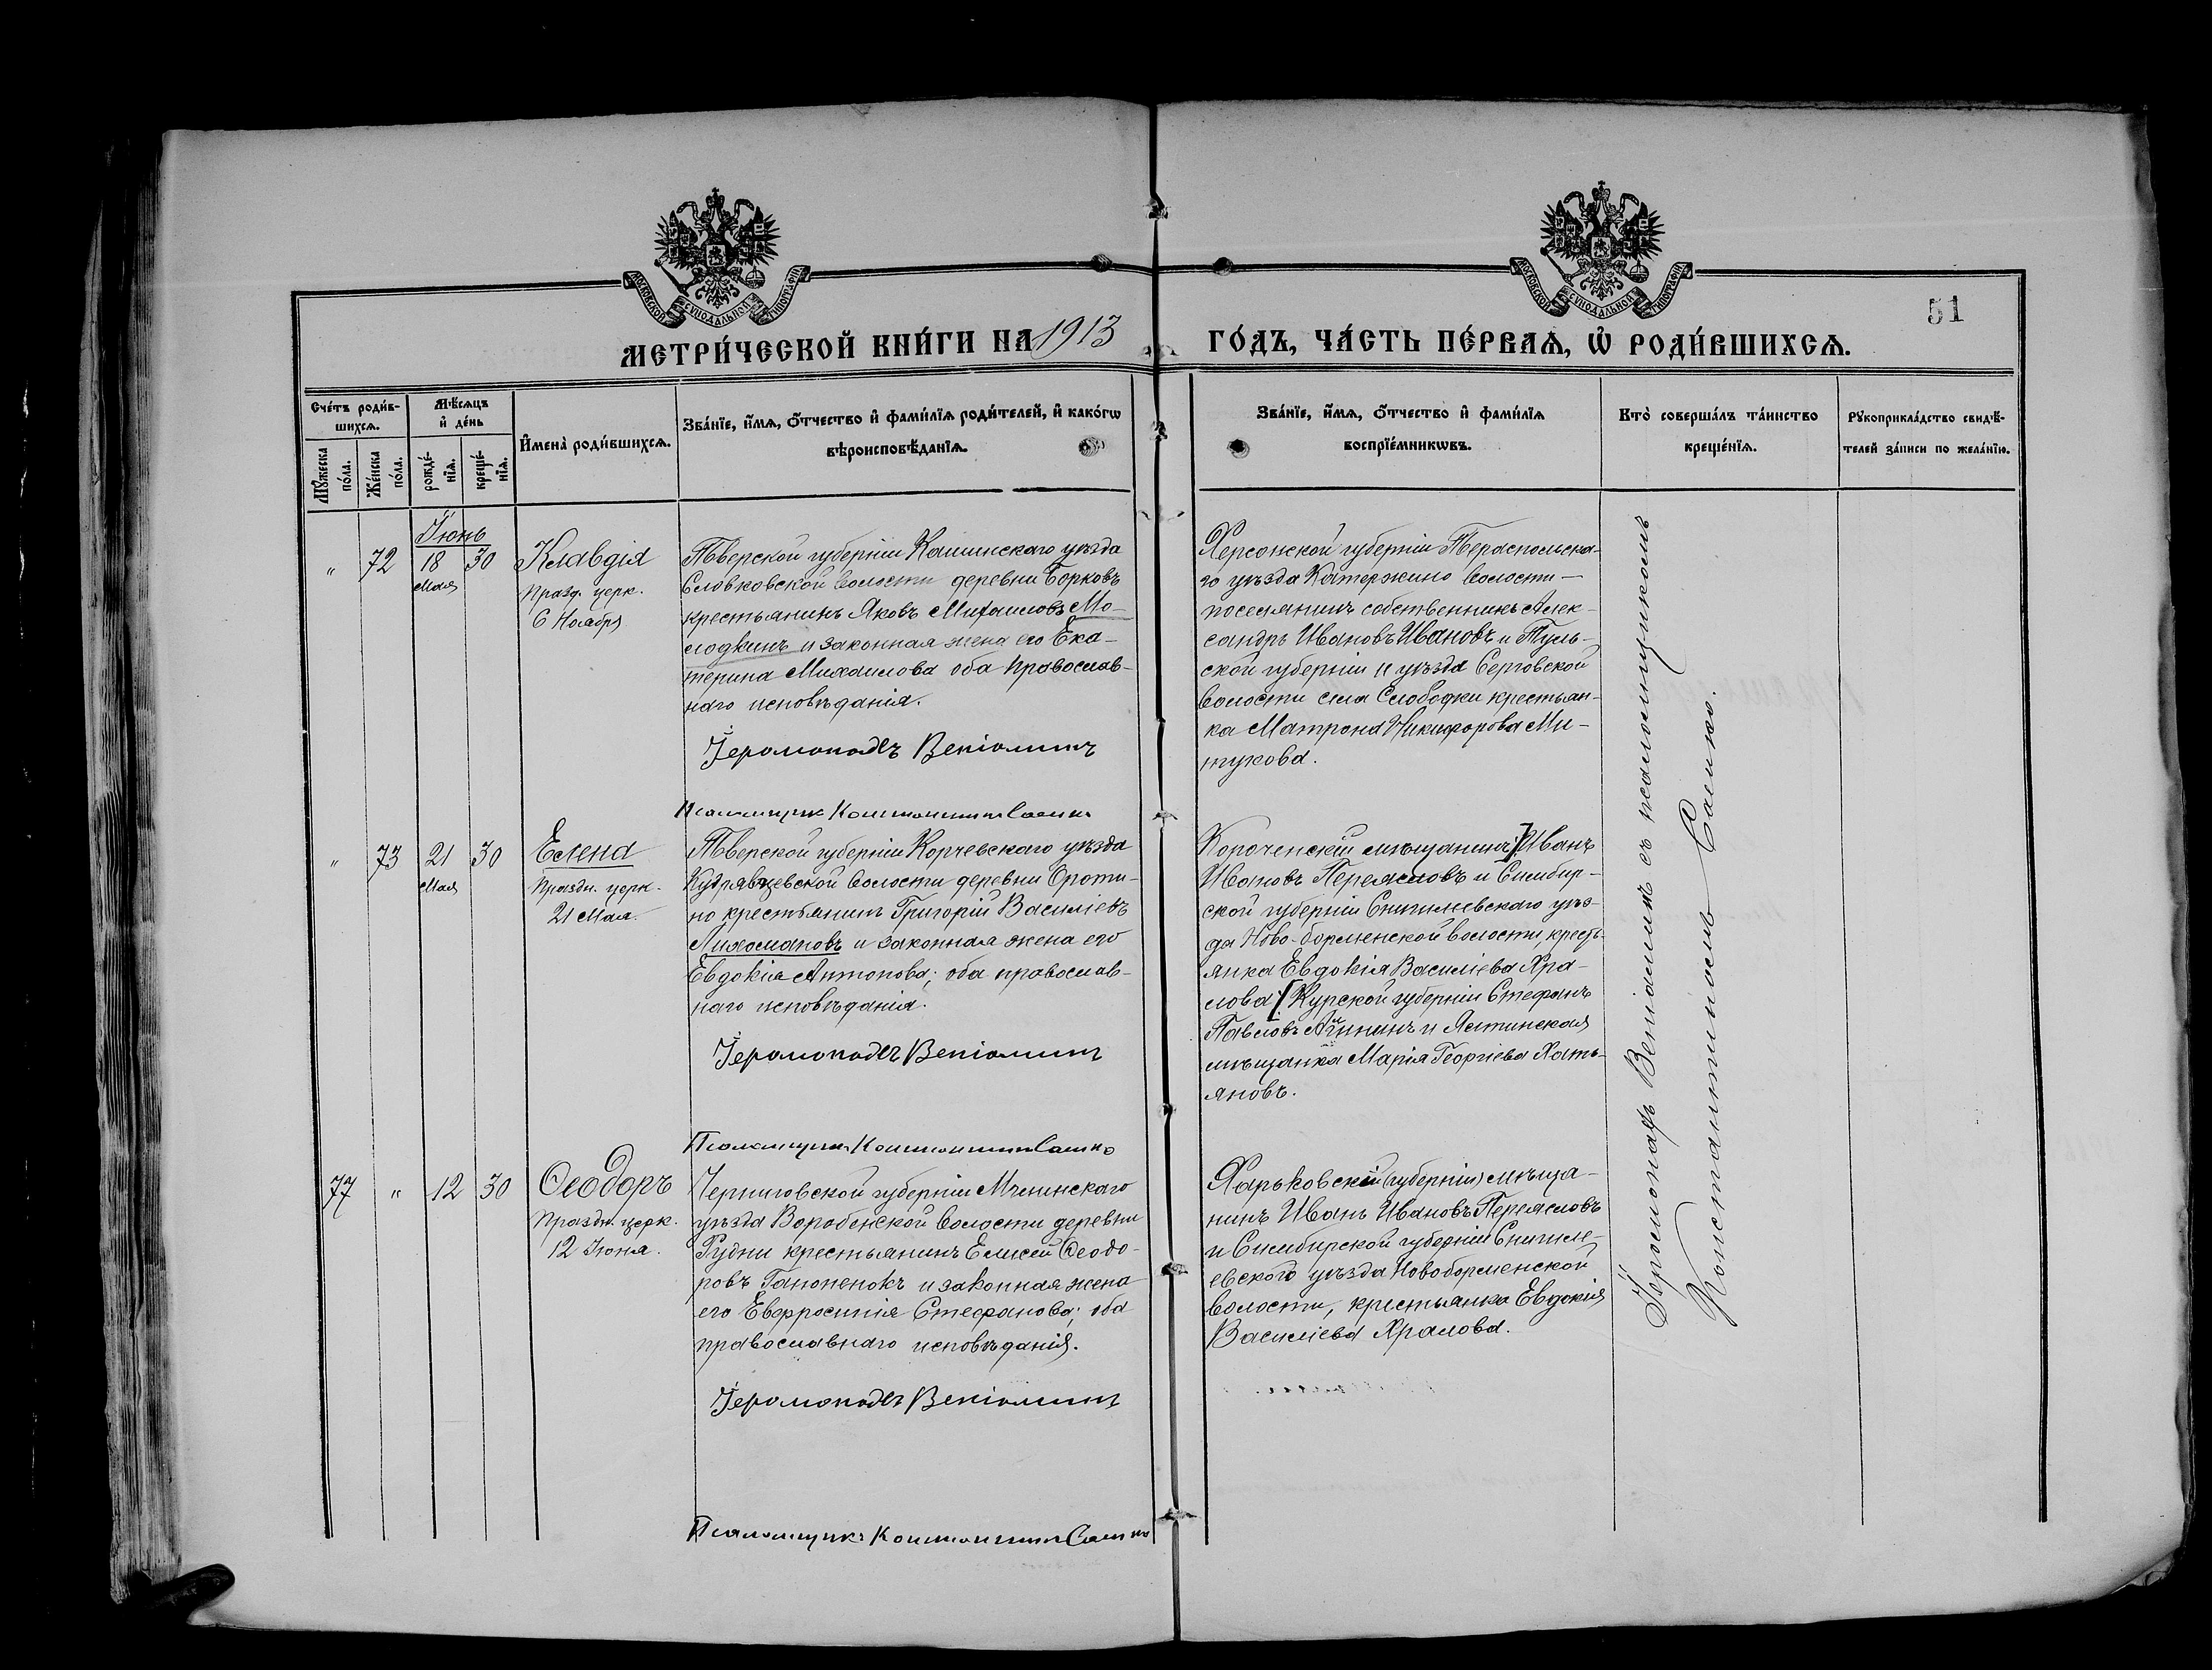 МОСКОВСКОЙ СѴНОДАЛЬНОЙ ТИПОГРАФІИ
МОСКОВСКОЙ СѴНОДАЛЬНОЙ ТИПОГРАФІИ
51
МЕТРИ́ЧЕСКОЙ КНИ́ГИ НА 1913 ГО́ДЪ, ЧА́СТЬ ПЕ́РВАѦ, Ѡ҆ РОДИ́ВШИХСѦ.
Сче́тъ роди́в-
шихсѧ.
Мꙋ́жеска по́ла.
Же́нска по́ла.
Мѣ́сѧцъ
и҆ де́нь
рожде́-
нїѧ.
креще́-
нїѧ.
И҆мена̀ роди́вшихсѧ.
Зва́нїе, и҆́мѧ, ѻ҆́тчество и҆ фами́лїѧ роди́телей, и҆ како́гѡ
вѣроисповѣ́данїѧ.
Зва́нїе, и҆́мѧ, ѻ҆́тчество и҆ фами́лїѧ
воспрїе́мникѡвъ.
Кто̀ соверша́лъ та́инство
креще́нїѧ.
Рꙋкоприкла́дство свидѣ́-
телей за́писи по жела́нїю.
Іюнь
„ 72 18 30
Мая
Клавдія
Празд. церк.
6 Ноября
Тверской губерніи Кашинскаго уѣзда
Словковской волости деревни Борковъ
крестьянинъ Яковъ Михаиловъ Мо-
лодкинъ и законная жена его Ека-
терина Михаилова оба православ-
наго исповѣданія.
Іеромонахъ Веніаминъ
Псаломщикъ Константинъ Сашко
Херсонской губерніи Тераспольска-
го уѣзда Катержино волости —
поселянинъ собственникъ Алек-
сандръ Ивановъ Ивановъ и Туль-
ской губерніи и уѣзда Серговской
волости села Слободки крестьян-
ка Матрона Никифорова Ми-
тукова.
„ 73 21 30
Мая
Елена
Праздн. церк.
21 Мая.
Тверской губерніи Корчевскаго уѣзда
Кудрявцевской волости деревни Сроти-
но крестьянинъ Григорій Василіевъ
Лихомановъ и законная жена его
Евдокія Антонова; оба православ-
наго исповѣданія.
Іеромонахъ Веніаминъ
Псаломщикъ Константинъ Сашко
Короченскій мѣщанинъ] Иванъ
Ивановъ Переясловъ и Симбир-
ской губерніи Снгилеевскаго уѣз-
да Ново-борменской волости, кресть-
янка Евдокія Василіева Хра-
лова [Курской губерніи Стефанъ
Павловъ и Ялтинская
мѣщанка Марія Георгіева Хать-
яновъ.
77 „ 12 30
Ѳеодоръ
Праздн. церк.
12 Іюня.
Черниговской губерніи Мглинскаго
уѣзда Воробенской волости деревни
Рудни крестьянинъ Елисей Ѳеодо-
ровъ Гапоненокъ и законная жена
его Евфросинія Стефанова; оба
православнаго исповѣданія.
Іеромонахъ Веніаминъ
Псаломщикъ Константинъ Сашко
Харьковскій (губерніи) мѣща-
нинъ Иванъ Ивановъ Переясловъ
и Симбирской губерніи Снгиле-
евскаго уѣзда Новоборменской
волости, крестьянка Евдокія
Василіева Хралова.
Іеромонахъ Веніаминъ съ псаломщикомъ
Константиномъ Сашко.